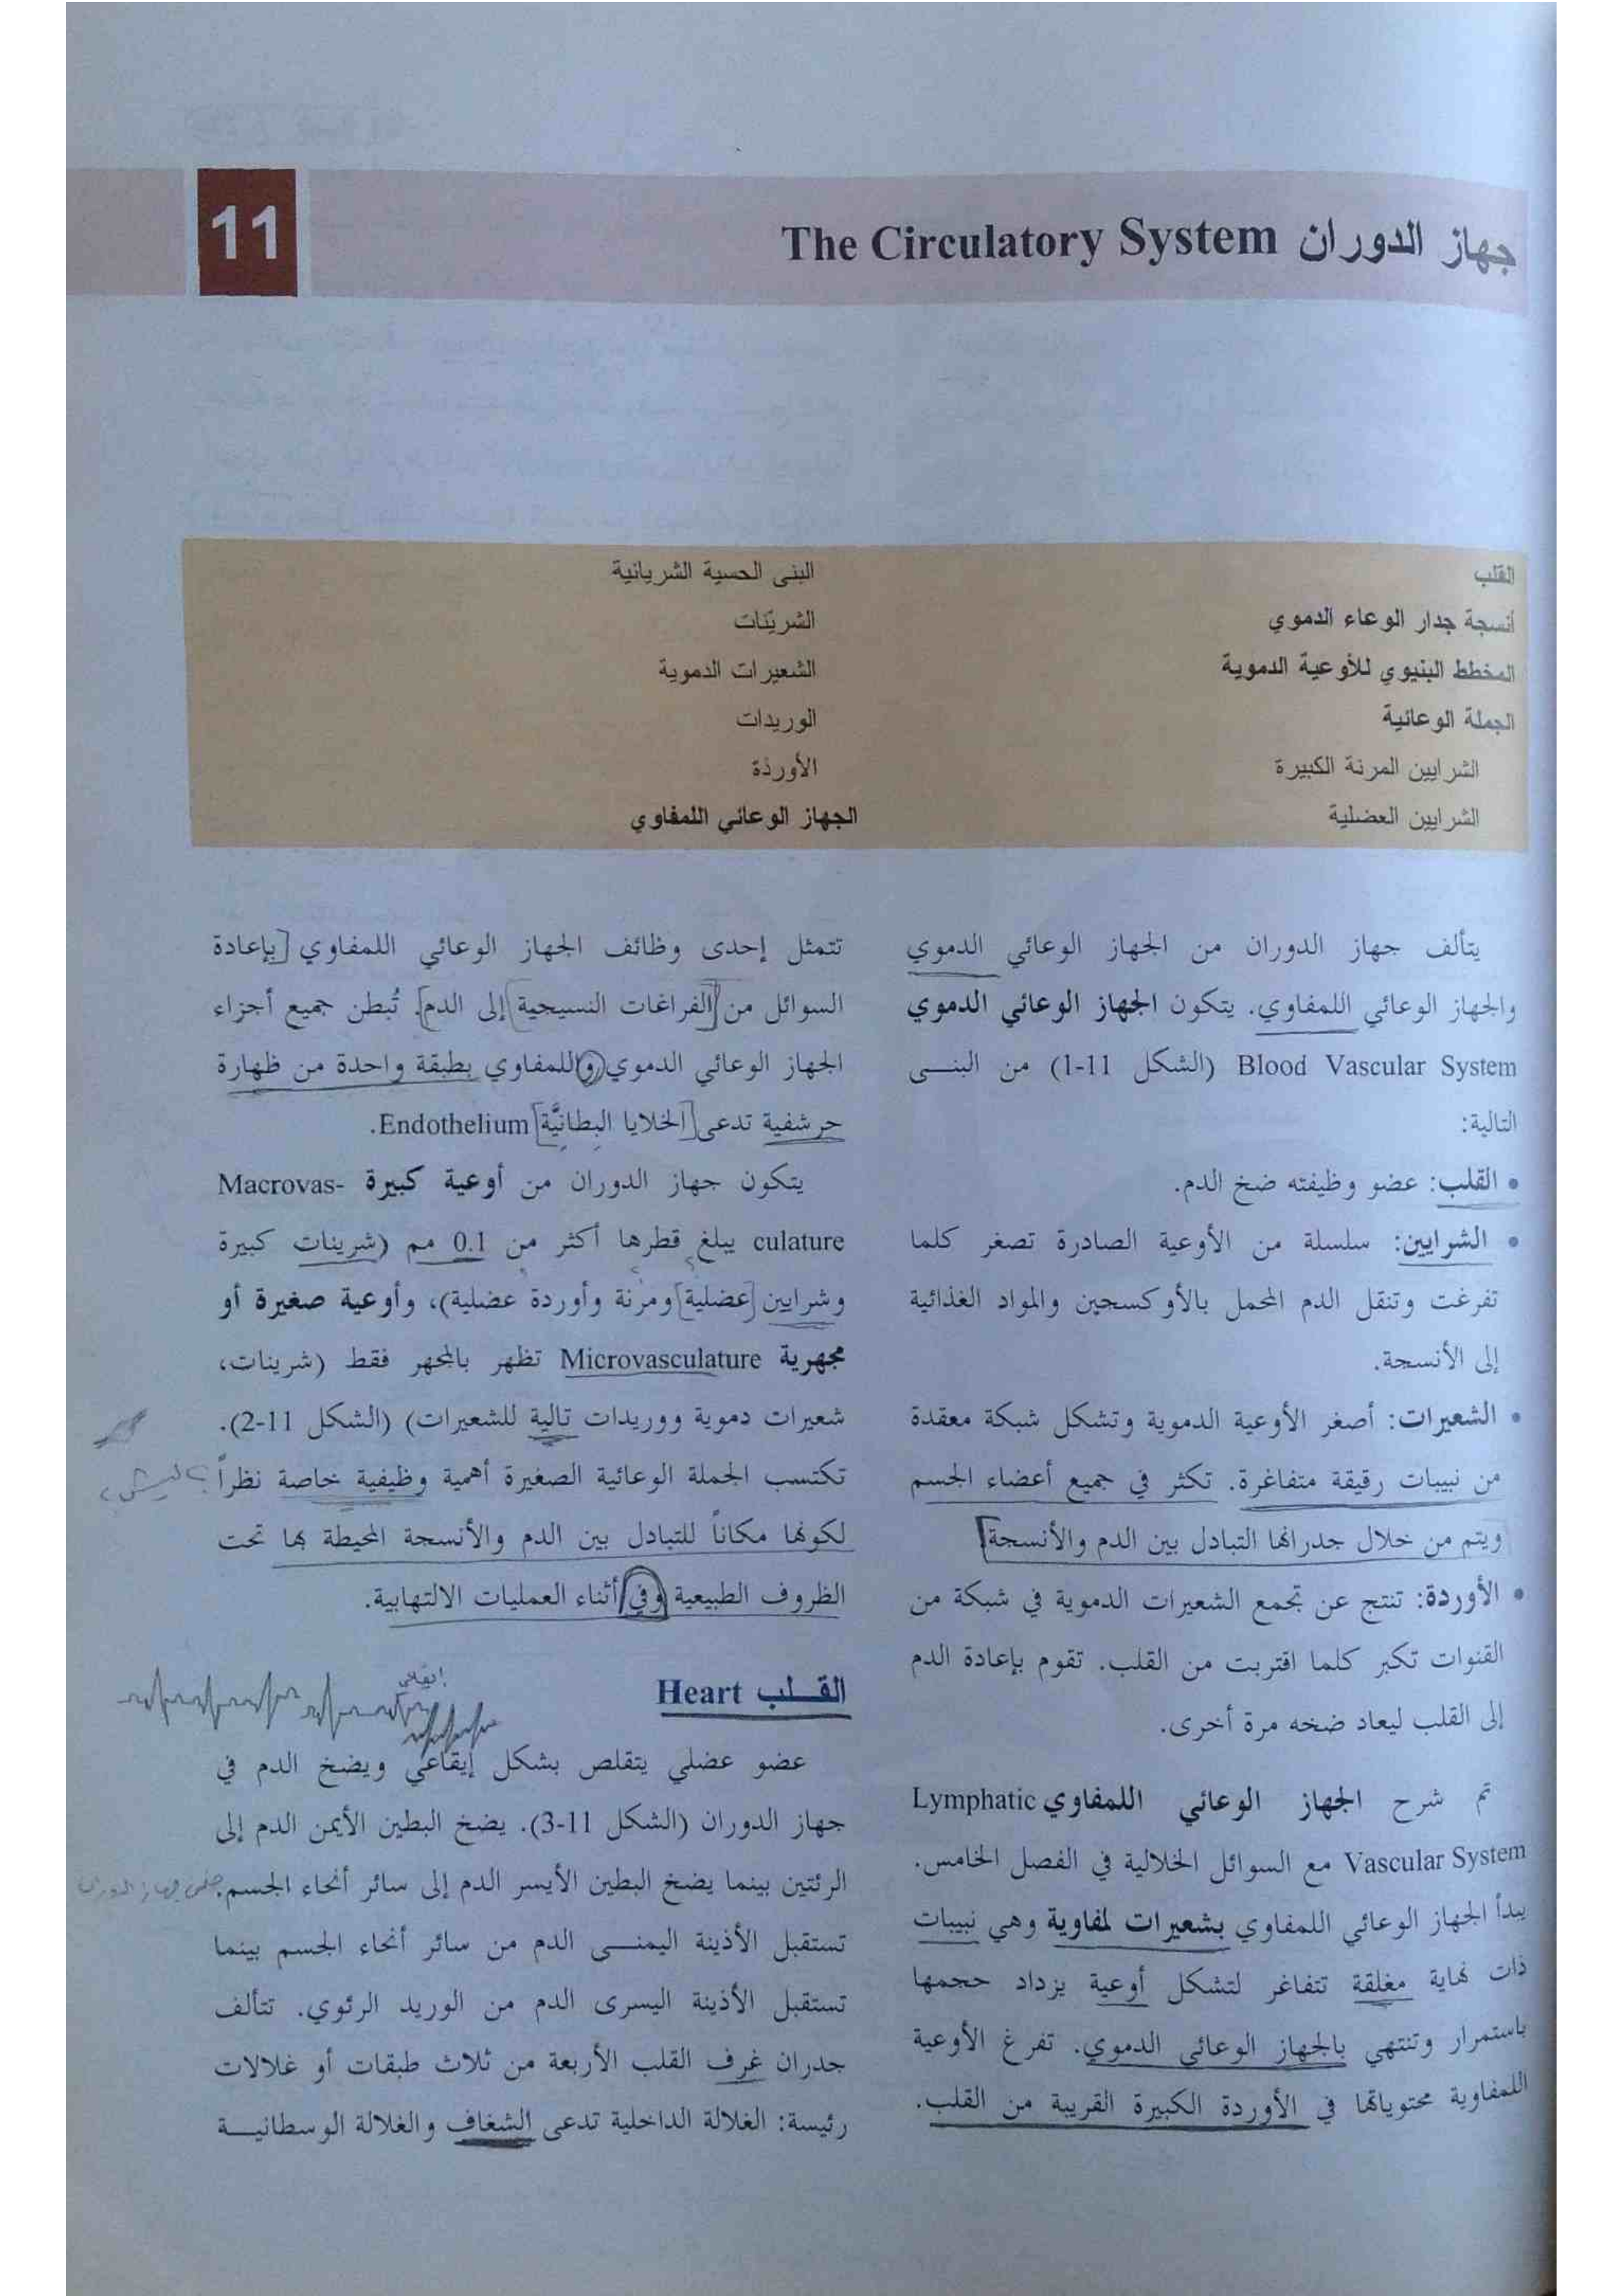 جهاز الدوران The Circulatory System
11
القلب
أنسجة جدار الوعاء الدموي
المخطط البنيوي للأوعية الدموية
الجملة الوعائية
الشرايين المرنة الكبيرة
الشرايين العضلية
البنى الحسية الشريانية
الشرينات
الشعيرات الدموية
الوريدات
الأوردة
الجهاز الوعائي اللمفاوي
يتألف جهاز الدوران من الجهاز الوعائي الدموي
والجهاز الوعائي اللمفاوي. يتكون الجهاز الوعائي الدموي
Blood Vascular System (الشكل 11-1) من البنى
التالية:
• القلب: عضو وظيفته ضخ الدم.
• الشرايين: سلسلة من الأوعية الصادرة تصغر كلما
تفرغت وتنقل الدم المحمل بالأوكسجين والمواد الغذائية
إلى الأنسجة.
• الشعيرات: أصغر الأوعية الدموية وتشكل شبكة معقدة
من نبيبات رقيقة متفاغرة. تكثر في جميع أعضاء الجسم
ويتم من خلال جدرانها التبادل بين الدم والأنسجة
• الأوردة: تنتج عن تجمع الشعيرات الدموية في شبكة من
القنوات تكبر كلما اقتربت من القلب. تقوم بإعادة الدم
إلى القلب ليعاد ضخه مرة أخرى.
تم شرح الجهاز الوعائي اللمفاوي Lymphatic
Vascular System مع السوائل الخلالية في الفصل الخامس.
يبدأ الجهاز الوعائي اللمفاوي بشعيرات لمفاوية وهي نبيبات
ذات نهاية مغلقة تتفاغر لتشكل أوعية يزداد حجمها
باستمرار وتنتهي بالجهاز الوعائي الدموي. تفرغ الأوعية
اللمفاوية محتوياتها في الأوردة الكبيرة القريبة من القلب.
تتمثل إحدى وظائف الجهاز الوعائي اللمفاوي [بإعادة
السوائل من [الفراغات النسيجية] إلى الدم]. تُبطن جميع أجزاء
الجهاز الوعائي الدموي واللمفاوي بطبقة واحدة من ظهارة
حرشفية تدعى [الخلايا البِطانيَّة] Endothelium.
يتكون جهاز الدوران من أوعية كبيرة Macrovas-
culature يبلغ قطرها أكثر من 0.1 مم (شرينات كبيرة
وشرايين [عضلية] ومرنة وأوردة عضلية)، وأوعية صغيرة أو
مجهرية Microvasculature تظهر بالمجهر فقط (شرينات،
شعيرات دموية ووريدات تالية للشعيرات) (الشكل 11-2).
تكتسب الجملة الوعائية الصغيرة أهمية وظيفية خاصة نظراً ؟ ليش
لكونها مكاناً للتبادل بين الدم والأنسجة المحيطة بها تحت
الظروف الطبيعية وفي أثناء العمليات الالتهابية.
القلب Heart
إيقاعي
عضو عضلي يتقلص بشكل إيقاعي ويضخ الدم في
جهاز الدوران (الشكل 11-3). يضخ البطين الأيمن الدم إلى
الرئتين بينما يضخ البطين الأيسر الدم إلى سائر أنحاء الجسم.
تستقبل الأذينة اليمنى الدم من سائر أنحاء الجسم بينما
تستقبل الأذينة اليسرى الدم من الوريد الرئوي. تتألف
جدران غرف القلب الأربعة من ثلاث طبقات أو غلالات
رئيسة: الغلالة الداخلية تدعى الشغاف والغلالة الوسطانية